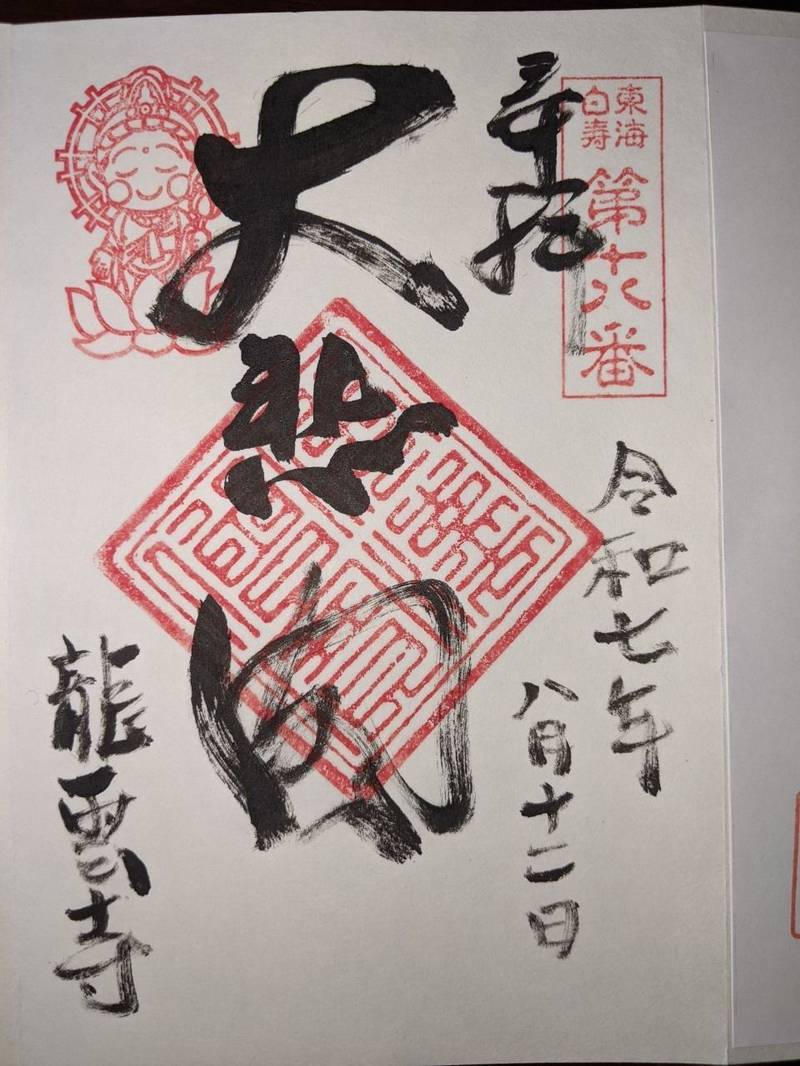 東海
白寿
第十八番
奉拝
令和七年
八月十二日
大悲閣
龍雲寺